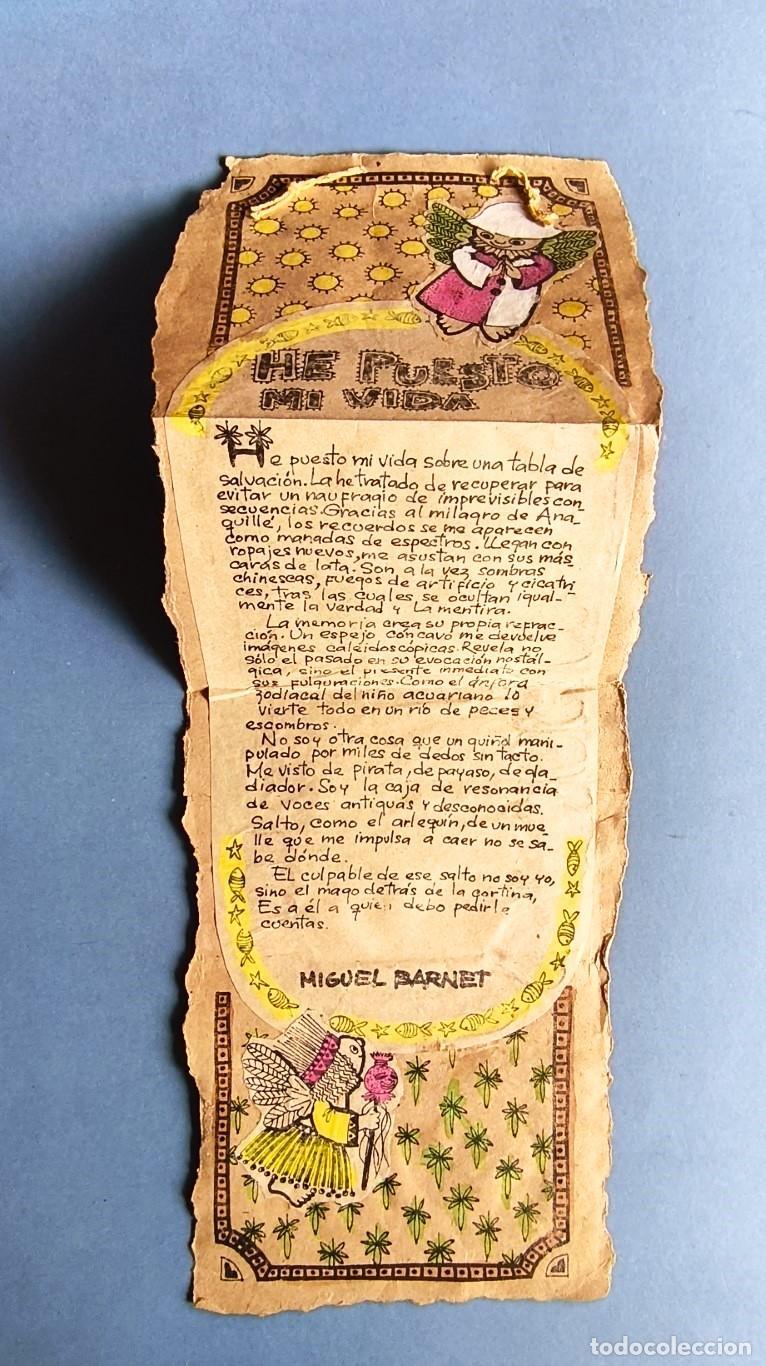 HE PUESTO
MI VIDA
He puesto mi vida sobre una tabla de
salvación. La he tratado de recuperar para
evitar un naufragio de imprevisibles con
secuencias. Gracias al milagro de Ana-
quillé, los recuerdos se me aparecen
como manadas de espectros. LLegan con
ropajes nuevos, me asustan con sus más
caras de lata. Son a la vez, sombras
chinescas, fuegos de artificio y cicatri
ces, tras las cuales se ocultan igual-
mente la verdad y la mentira.
La memoria crea su propia refrac-
ción. Un espejo cóncavo me devuelve
imágenes caleidoscópicas. Revela no
sólo el pasado en su evocación nostál-
gica, sino el presente inmediato con
sus fulguraciones. Como el ánfora
zodiacal del niño acuariano lo
vierte todo en un río de peces y
escombros.
No soy otra cosa que un guiñol mani-
pulado por miles de dedos sin tacto.
Me visto de pirata, de payaso, de gla
diador. Soy la caja de resonancia
de voces antiguas y desconocidas.
Salto, como el arlequín, de un mue
lle que me impulsa a caer no se sa-
be dónde.
EL culpable de ese salto no soy yo,
sino el mago detrás de la cortina,
Es a él a quien debo pedirle
cuentas.
MIGUEL BARNET
todocoleccion